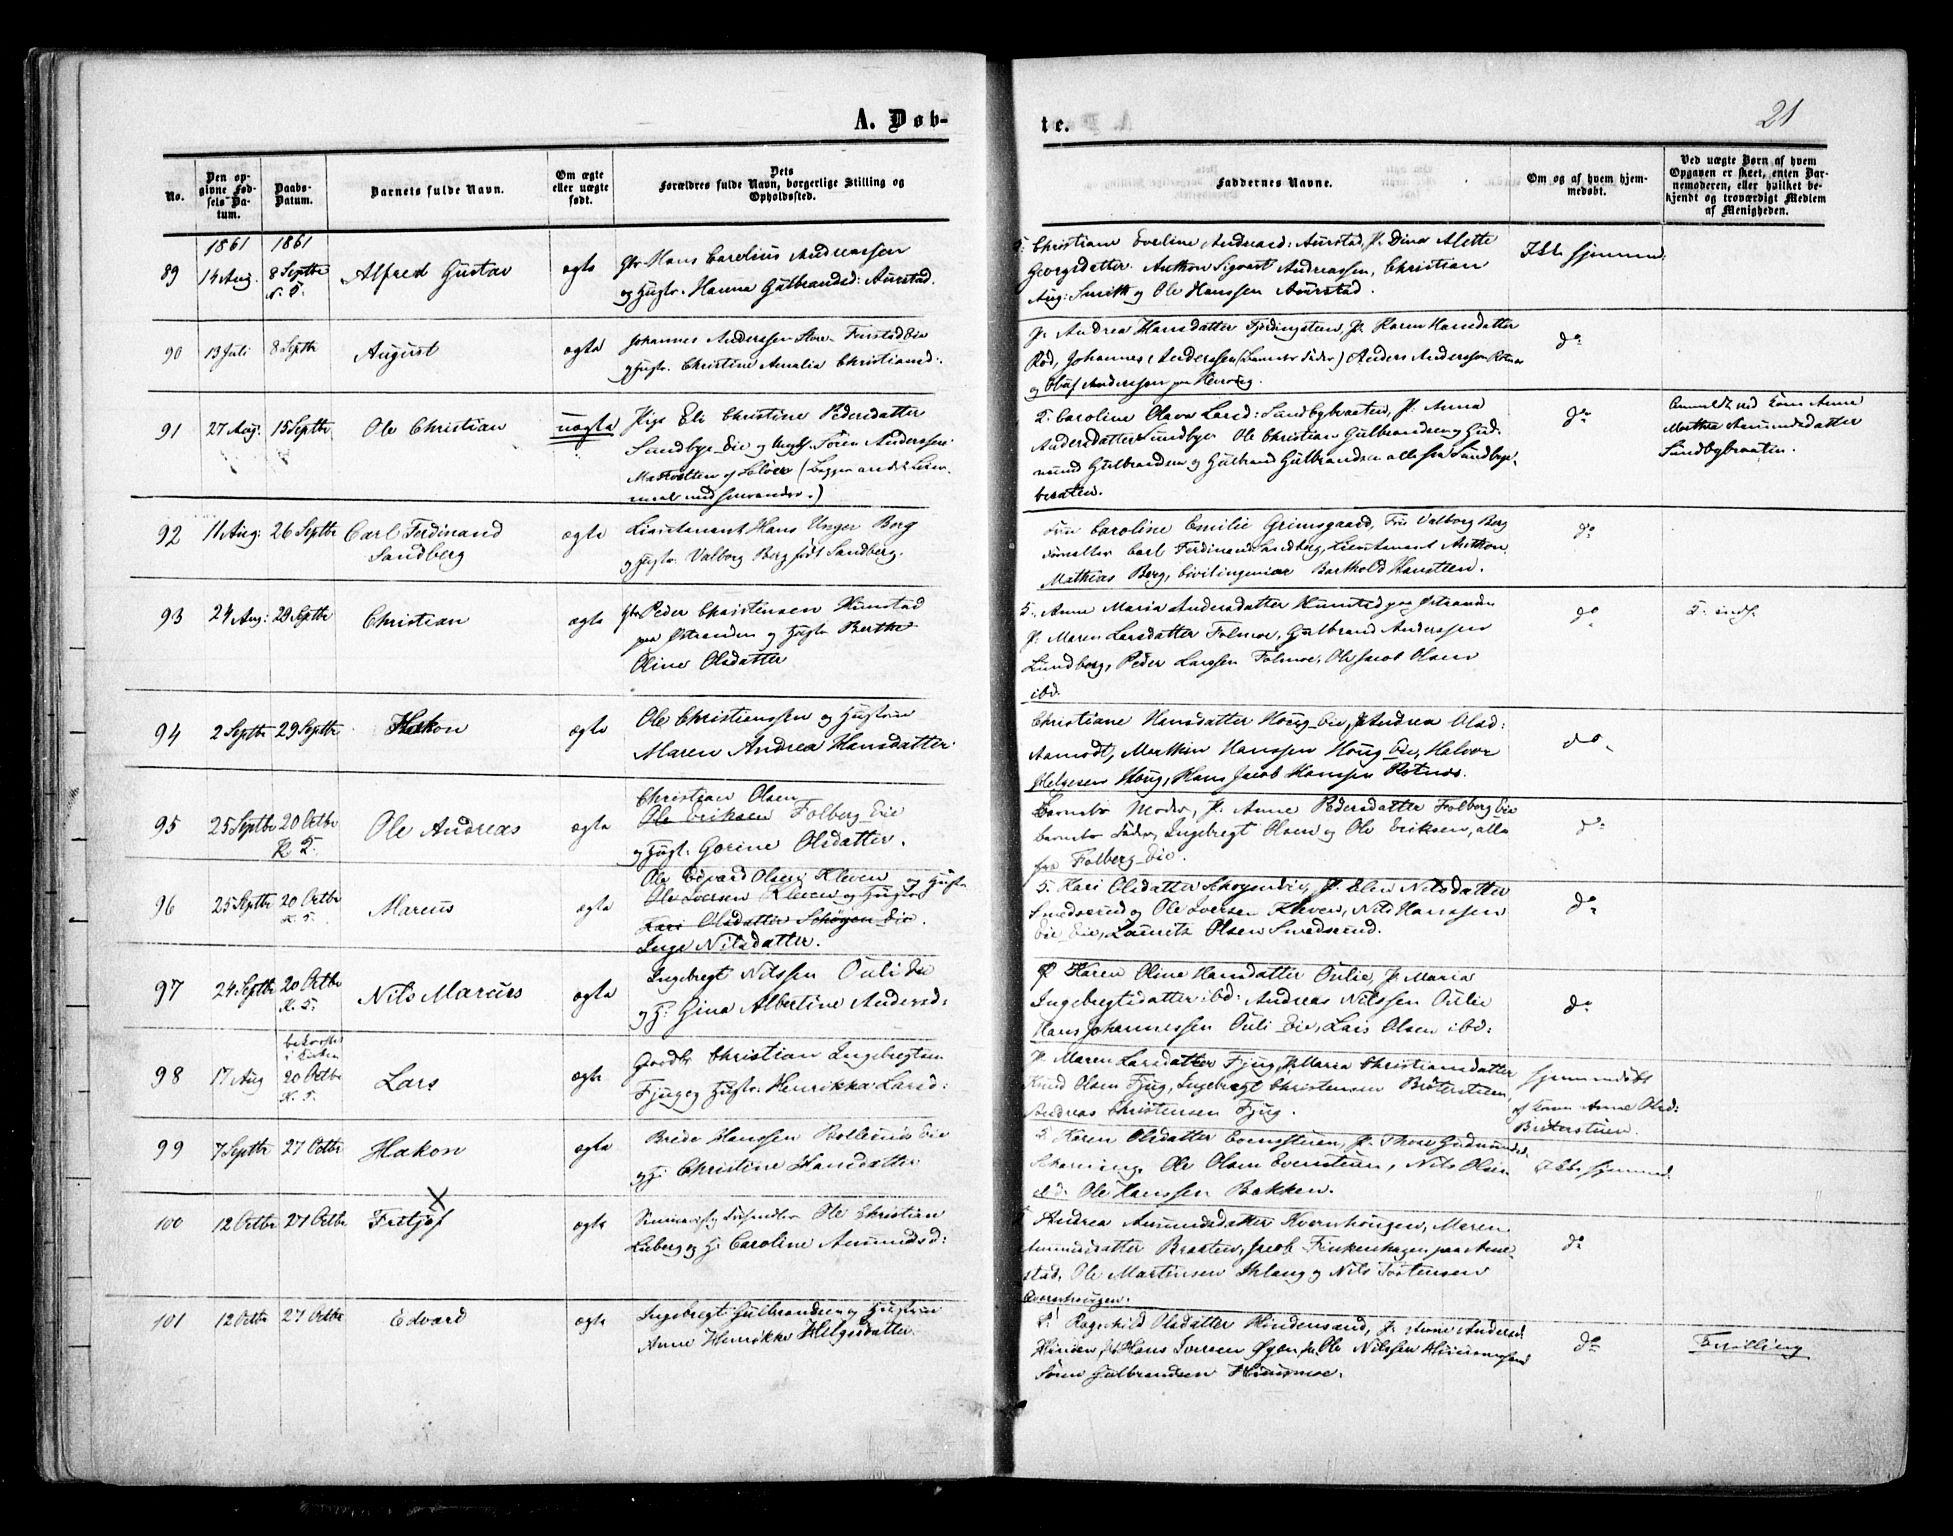 A. Døb-
te.
21
No.
Den op-
givne Fød-
sels Da-
tum.
Daabs-
Datum.
Barnets fulde Navn.
Om ægte
eller uægte
født.
Dets
Forældres fulde Navn, borgerlige Stilling og
Opholdssted.
Faddernes Navne.
Om og af hvem hjem-
medøbt.
Ved uægte Børn af hvem
Opgaven er skeet, enten Bar-
nemoderen, eller hvilket be-
kjendt og troværdigt Medlem
af Menigheden.
1861
1861
89
14 Aug.
8 Septbr
Alfred Gustav
ægte
Hans Carelius Andreassen
og Hustr. Hanna Gulbrandsd: Aurstad.
Christiane Eveline Andreasd: Aurstad, P. Dina Alette
Georgsdatter. Anthon Sigvart Andreassen, Christian
Aug: Smith og Ole Hanssen Aurstad.
Ikke hjemmed:
90
13 Juli
8 Septbr
August
ægte
Johannes Anderssen
og Hustr. Christine Amalia Christiansd:
P. Andrea Hansdatter Fjedingsteen, P. Karen Hansdatter
Rød, Johannes Anderssen (Barnets Fader) Anders Anderssen
og Oluf Anderssen
do
91
27 Aug:
15 Septbr
Ole Christian
uægte
Pige Eli Christine Pedersdatter
Sandbye Eie og Ungk. Søren Anderssen
P: Caroline Olava Larsd: Sandbybraaten, P. Anna
Andersdatter Sandbye Ole Christian Gulbrandsen og Gud-
mund Gulbrandsen og Gulbrand Gulbrandsen alle fra Sandbye-
braaten.
do
Anmeldt ved Kone Anne
Marthea Amundsdatter
Sandbybraaten.
92
11 Aug:
26 Septbr
Carl Ferdinand
Sandberg
ægte
Lieutenant Hans Unger Berg
og Hustr. Valborg Berg født Sandberg.
Fru Caroline Emilie Grimsgaard, Frk Valborg Berg
Carl Ferdinand Sandberg, Lieutenant Anthon
Mathias Berg, Civilingeniør Barthold Hansteen.
do
93
24 Aug:
29 Septbr
Christian
ægte
Peder Christensen Kumstad
paa Østranden og Hustr Berthe
Oline Olsdatter
Anne Maria Andersdatter Kumstad paa Østranden
P. Maren Larsdatter Folmoe, Gulbrand Anderssen
Lundberg, Peder Larssen Folmoe, Ole Jacob Olsen
ibd.
do
94
2 Septbr
29 Septbr
Hakon
ægte
Ole Christianssen og Hustrue
Maren Andrea Hansdatter.
Christiane Hansdatter Houg Eie, P Andrea Olsd:
Aamodt, Marthin Hanssen Houg Eie, Halvor
Helgesen Houg, Hans Jacob Hanssen Rotnes.
do
95
25 Septbr
20 Octbr
Ole Andreas
ægte
Christian Olsen
Ole Eriksen Folberg Eie
og Hust: Gorine Olsdatter.
Barnets Moder, P. Anne Pedersdatter Folberg Eie
Barnets Fader, Ingebregt Olsen og Ole Eriksen, alle
fra Folberg Eie.
do
96
25 Septbr
20 Octbr
Marcus
ægte
Ole Edvard Olsen Kleven og Hustr
Ole Iversen Kleven og Hustr
Kari Olsdatter Schøyen Eie.
Inge Nilsdatter.
Kari Olsdatter Schøyen Eie, P. Elen Nilsdatter
Smedserud og Ole Iversen Kleven, Nils Hanssen
Eie, Lauritz Olsen Smedserud.
do
97
24 Septbr
20 Octbr
Nils Marcus
ægte
Ingebregt Nilssen Ouli Eie
og H: Gina Albertine Andersd:
Karen Oline Hansdatter Oulie, P. Maria
Ingebregtsdatter ibd: Andreas Nilssen Oulie
Hans Johannessen Ouli Eie, Lars Olsen ibd:
do
98
17 Aug
20 Octbr
Lars
ægte
Christian Ingebregtsen
Fjug og Hustr. Henrikka Larsd:
P. Maren Larsdatter Fjug, P. Maria Christiansdatter
Knud Olsen Fjug, Ingebregt Christensen
Andreas Christensen Fjug.
hjemmedøbt
af Kone Anne Olsd:
99
7 Septbr
27 Octbr
Hakon
ægte
Brede Hanssen Eie
og H: Christine Hansdatter
Karen Olsdatter Evensteen, P. Thore Gudmundsd.
Ole Olsen Evensteen, Nils Olsen
Ole Hanssen Bakken.
Ikke hjemmed.
100
12 Octbr
27 Octbr
Fritjof
ægte
Ole Christian
og H: Caroline Amundsd:
Andrea Amundsdatter Kvernhougen, Maren
Amundsdatter Braaten, Jacob Finkenhagen
Ole Martinsen og Nils Torstensen
Qvernhougen.
do
101
12 Octbr
27 Octbr
Edvard
ægte
Ingebregt Gulbrandsen og Hustrue
Anne Henrikke Helgesdatter.
P: Ragnhild Olsdatter
Hans Iversen Ole Nilssen
Søren Gulbrandsen
do
Tvilling